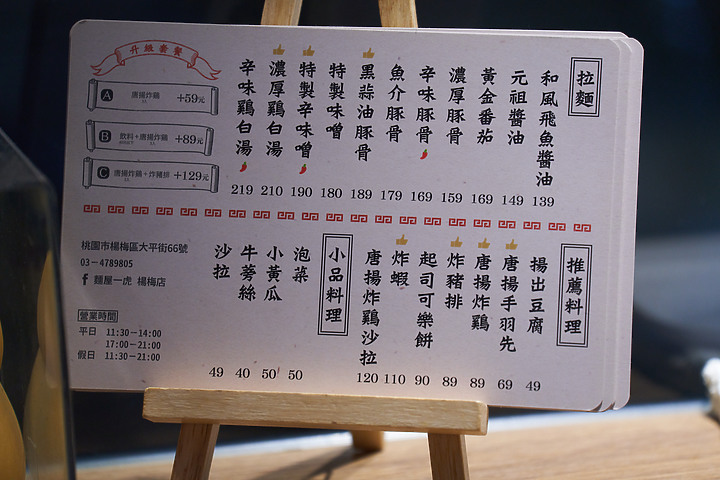 拉麵
和風飛魚醬油 139
元祖醬油 149
黃金番茄 169
濃厚豚骨 159
辛味豚骨 169
魚介豚骨 179
黑蒜油豚骨 189
特製味噌 180
特製辛味噌 190
濃厚鷄白湯 210
辛味鷄白湯 219
升級套餐
A 唐揚炸鷄 +59元
B 飲料+唐揚炸鷄 +89元
C 唐揚炸鷄+炸豬排 +129元
推薦料理
揚出豆腐 49
唐揚手羽先 69
唐揚炸鷄 89
炸豬排 89
起司可樂餅 90
炸蝦 110
唐揚炸鷄沙拉 120
小品料理
泡菜 50
小黃瓜 50
牛蒡絲 40
沙拉 49
桃園市楊梅區大平街66號
03-4789805
麵屋一虎 楊梅店
營業時間
平日 11:30-14:00
17:00-21:00
假日 11:30-21:00